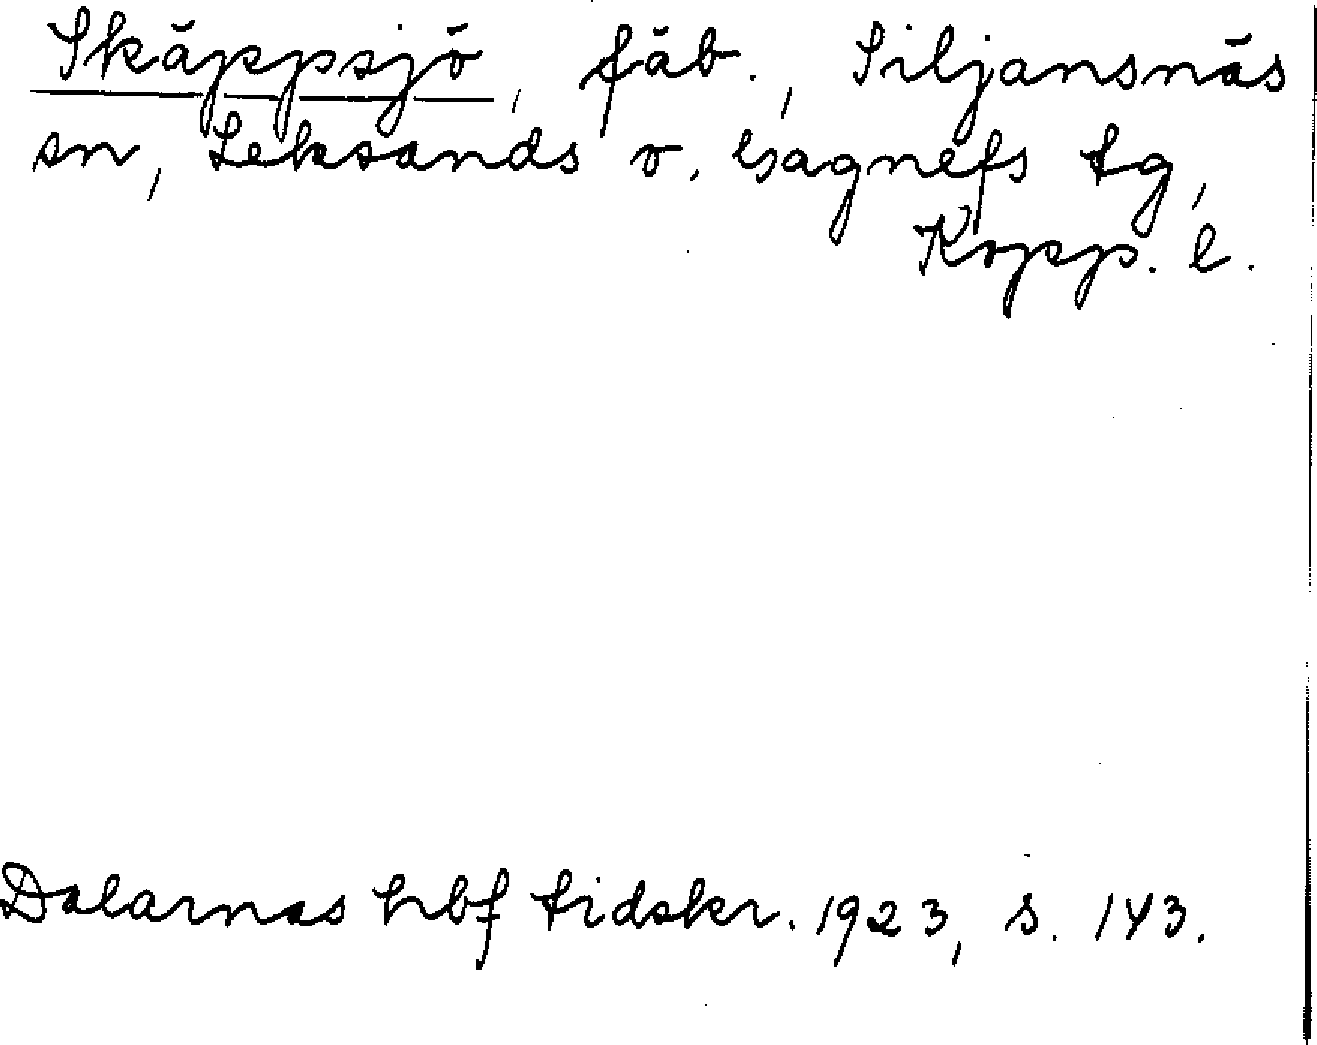 Skäppsjö, fäb., Siljansnäs
sn, Leksands o. Gagnefs tg,
Kopp. l.
Dalarnas hbf tidskr. 1923, s. 143.